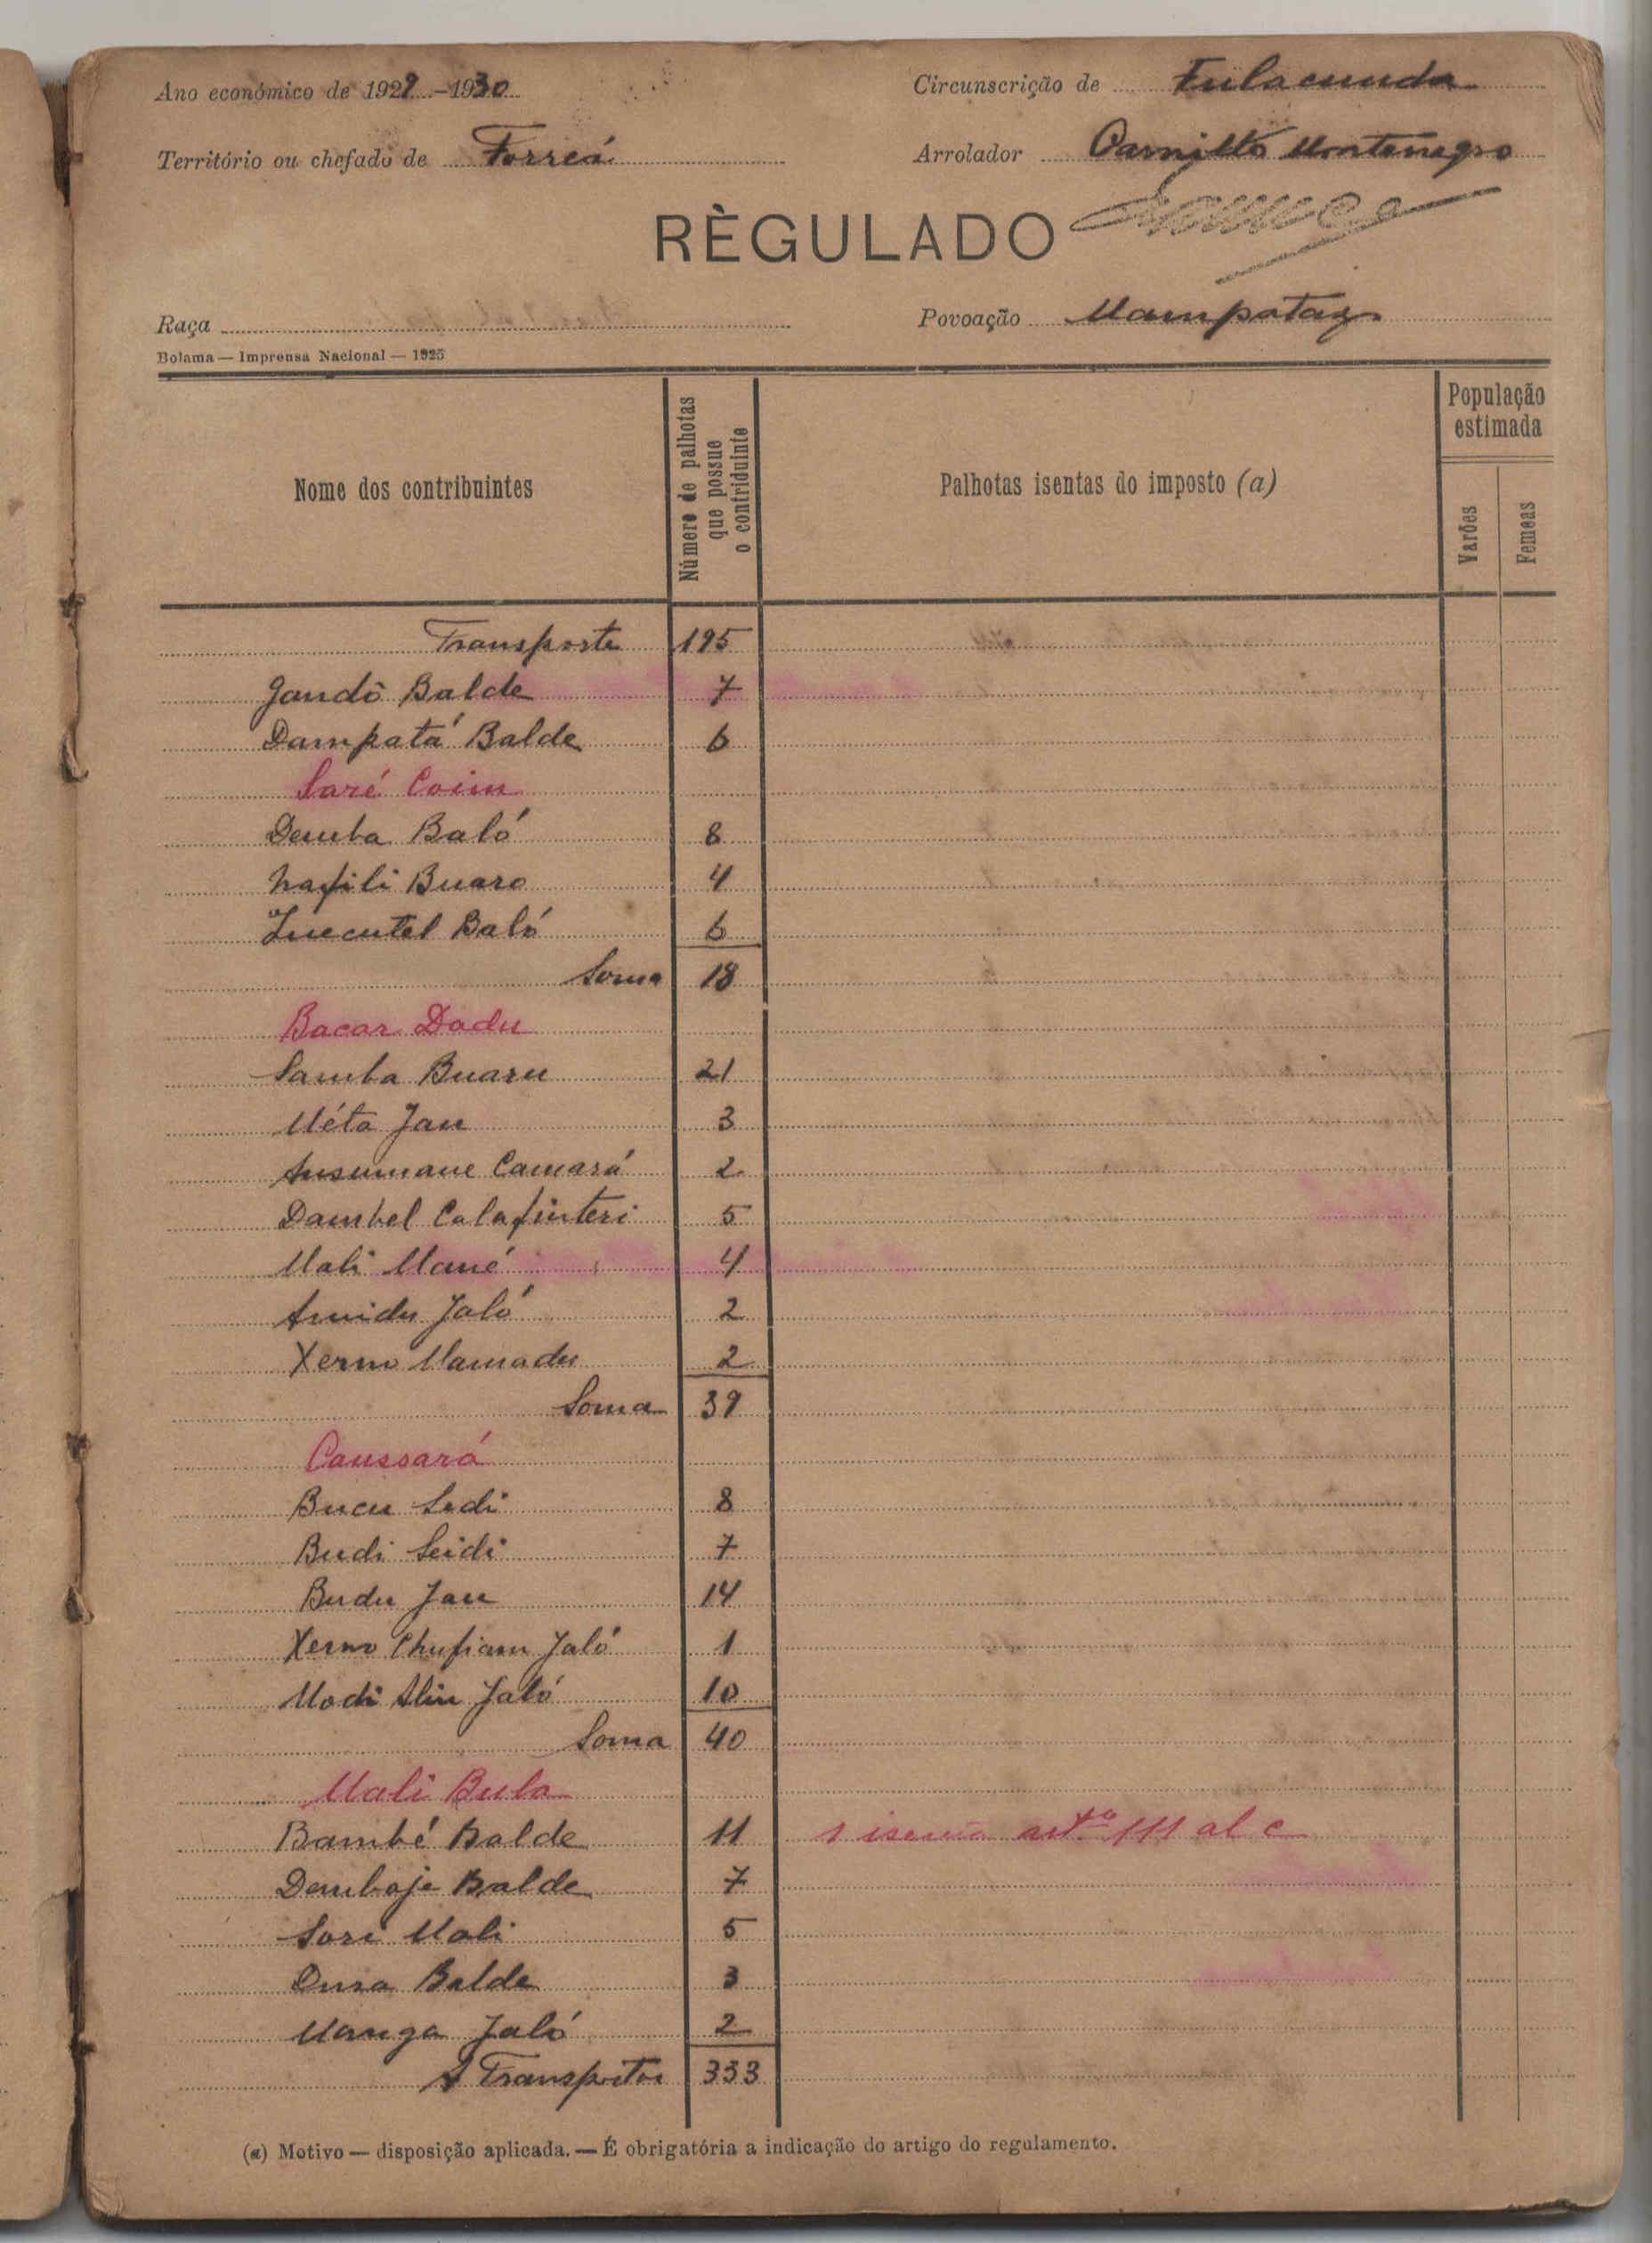 Ano económico de 1929-1930
Circunscrição de Fulacunda
Território ou chefado de Forreá
Arrolador Camillo Montenegro
RÈGULADO
Raça
Povoação Mampataz
Bolama — Imprensa Nacional — 1925
Nome dos contribuintes
Número de palhotas que possue o contriduinte
Palhotas isentas do imposto (a)
População estimada
Varões
Femeas
Transporte 195
Jandô Balde 7
Dampatá Balde 6
Saré Coim
Demba Baló 8
Nafili Buaro 4
Baló 6
Soma 18
Bacar Dadu
Samba Buaru 21
Méta Jau 3
Ansumane Camará 2
Dambel Calafinteri 5
Mali Mané 4
Amidu Jaló 2
Xerno Mamadu 2
Soma 39
Caussará
Bucu Sedi 8
Budi Seidi 7
Budu Jau 14
Xerno Chufiam Jaló 1
Modi Aliu Jaló 10
Soma 40
Mali Bula
Bambé Balde 11 1 isenta artº 111 al c
Demboje Balde 7
Sori Mali 5
Dura Balde 3
Manga Jaló 2
A Transportar 333
(a) Motivo — disposição aplicada. — É obrigatória a indicação do artigo do regulamento.